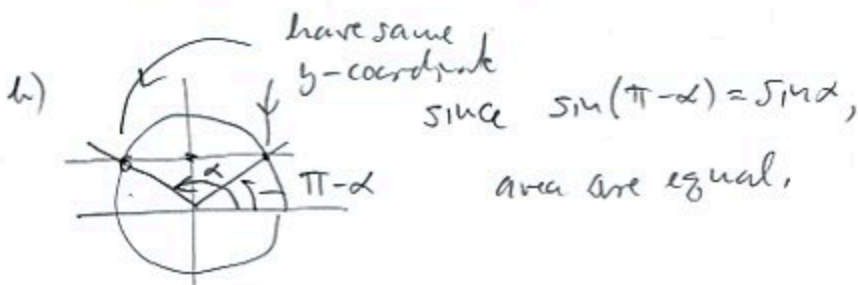 b)
have same
y-coordinate
since sin(π-α) = sin α,
α
π-α
area are equal.